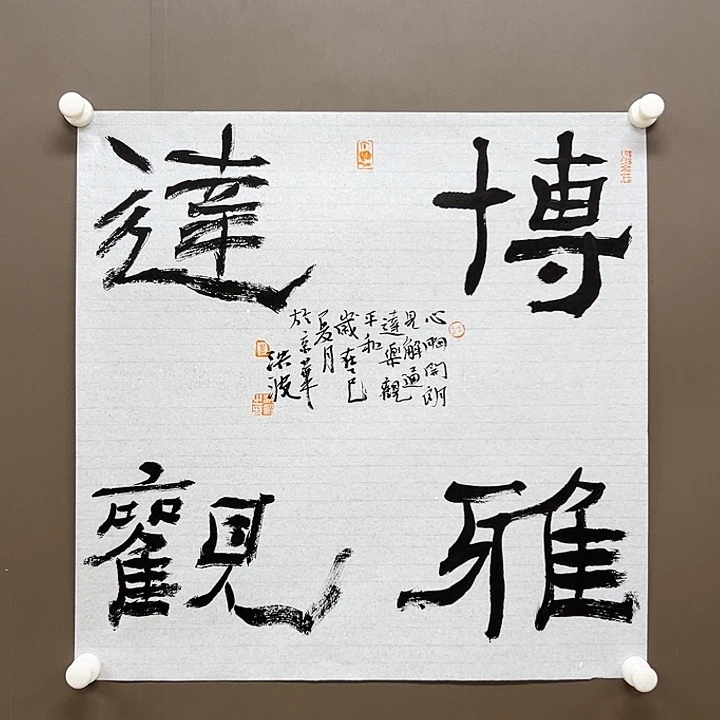 博雅
達觀
心胸開朗
見解通
達樂觀
平和
歲在乙巳
夏月
於京華
洪波